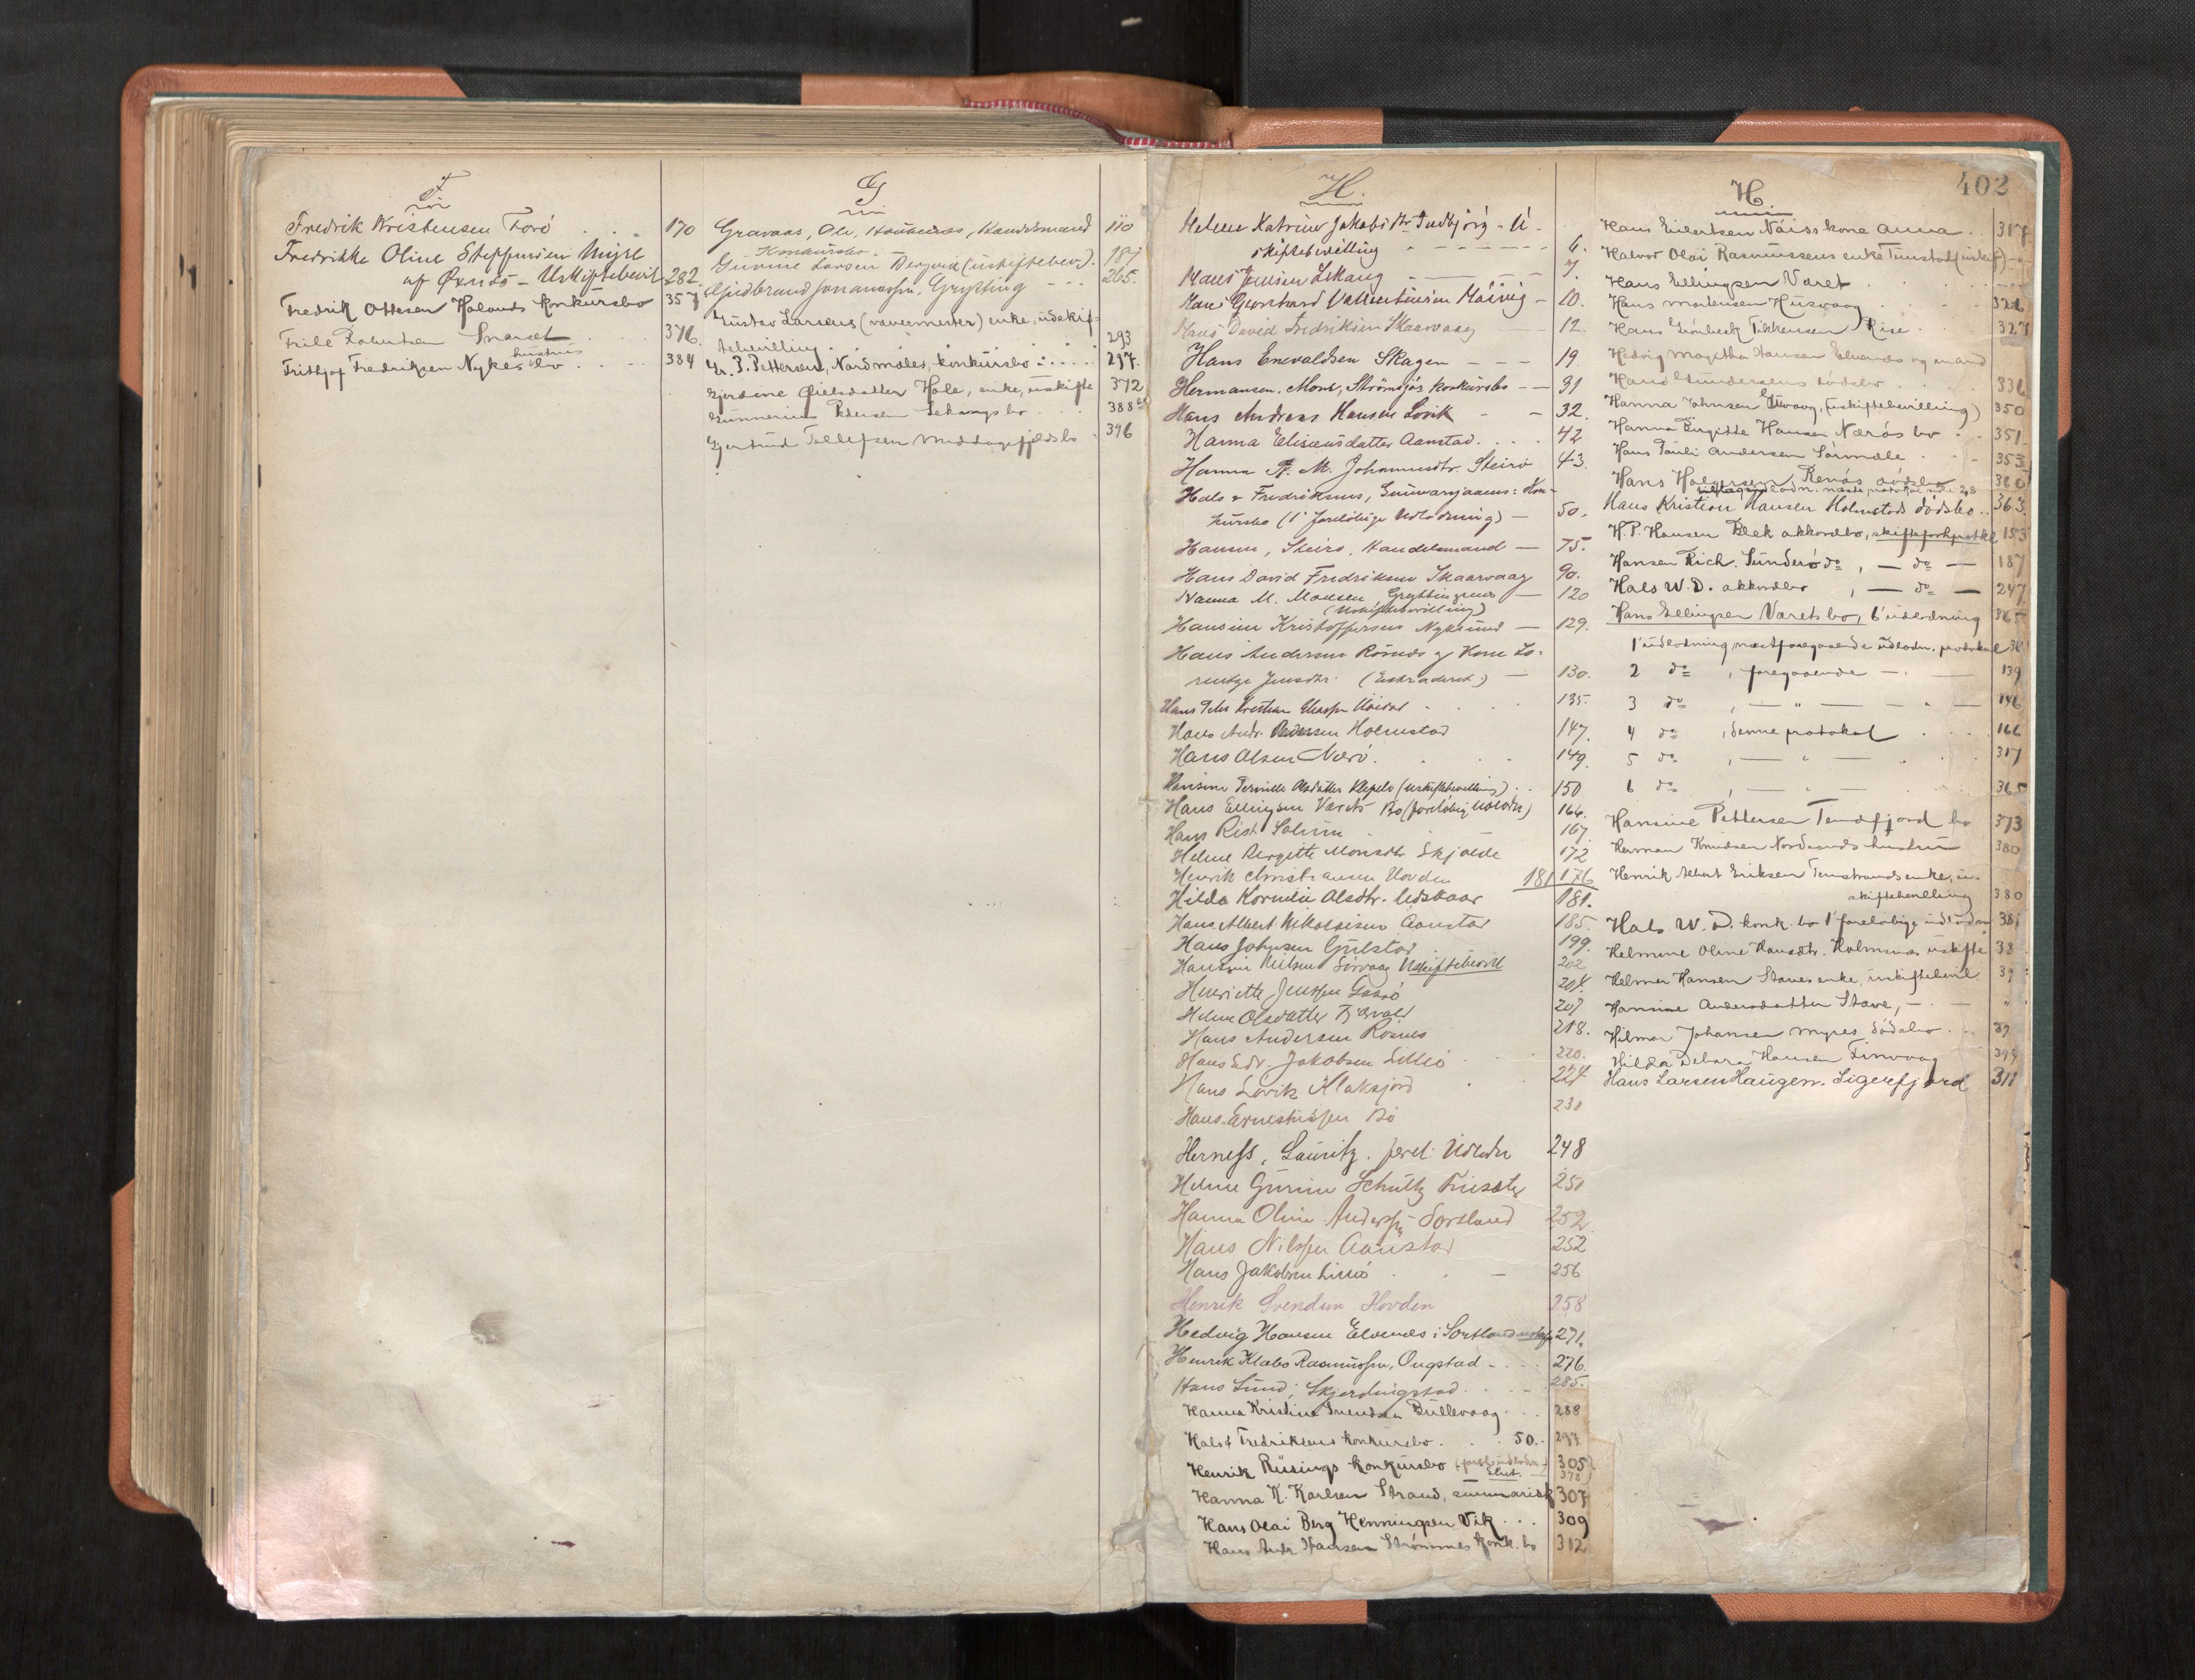 F
Fredrik Kristensen Forö 170
Fredrikke Oline Steffensen Myre
af Øxnes - Uskiftebevil 282.
Fredrik Ottesen Holands konkursbo 357
Snarset 376.
hustrus
Frithjof Fredriksen Nykes bo 384
G
Gravaas, Ole, Handelsmand 110
Konkursbo.
Gunine Larsen Bergvik (uskiftebev). 187
Gudbrand Jonanassen, Grytting 265.
Gustav Larsens (vævermester) enke, udskif-
tebevilling. 293
Gr. P. Pettersen, Nordmeles, konkursbo 297.
Gjerdine Ølelsdatter Hole, enke, uskifte 372
Gunnerius Pedersen Lekangs bo 388
Gjertrud Tollefsen Middagsfjelds bo 396
H.
Helene Katrine Jakobsdtr Indbjörg - U-
skiftebevilling 6.
Hans Jensen Lekang 7.
Hans Gerhard Valentinsen 10.
Hans David Fredriksen Skaarvaag 12.
Hans Enevaldsen Skagen 19.
Hermansen, Mons, Strömsfjor konkursbo 31
Hans Andreas Hansen Lovik 32.
Hanna Elisæusdatter Aanstad 42
Hanna P. M. Johannesdtr. Steiro 43.
Hals & Fredriksens, Gunnarsjaaens: Kon-
kursbo (1' foreløbige Udlodning) 50.
Hansen, Steiro, Handelsmand 75.
Hans David Fredriksen Skaarvaag 90.
Hanna M. Monsen Gryttingsnes 120
(Uskiftebevilling)
Hansine Kristoffersens Nyksund 129.
Hans Andersen Rösnes og Kone Lo-
rentze Jensdtr. (Extraderet) 130.
Hans Peter Kristian 135.
Hans Andr. Pedersen Holmstad 147.
Hans Olsen Nærö. 149.
Hansine Pernille Olsdatter Klepels (uskiftebevilling) 150
Hans Ellingsen Varets Bo (foreløbig Udlodn) 166.
Hans Rist Solum 167.
Helene Bergitte Monsdtr Skjolde 172
Henrik Christiansen Hovden 181 176
Hilda Kornelie Olsdtr. Udskaar 181.
Hans Albert Nikolaisens Aanstad 185.
Hans Johnsen Gulstad 199.
Hansine Nielsens Sörvaag Uskiftebevill 202
Henriette Jenssen Gaasö 204.
Helene Olsdatter Tjervold 207
Hans Andersen Rösnes 218.
Hans Edv. Jakobsen Lillö 220.
Hans Lövik Klaksjord 224
Hans Ernestussen Bö 231
Herness, Lauritz. forel: Udlodn 248
Helene Gurine Schultz 251
Hanna Oline Anderssen Sortland 252
Hans Nilssen Aanstad 252
Hans Jakobsen Lillö 256
Henrik Svendsen Hovden 258
Hedvig Hansen Elvenes i Sortland uskf 271.
Henrik Klabo Rasmussen, Ongstad 276.
Hans Lund, Skjerdingstad 285.
Hanna Kristine Svendsen Bullevaag 288
Hals & Fredriksens konkursbo. 50. 297.
Henrik Rusings konkursbo (forel. udlodn) 305
Slut. 378
Hanna K. Karlsen Strand, summarisk 307
Hans Olai Berg Henningsen Vik 309
Hans Andr Hansen Strömmes konk. bo 312
402
H
Hans Eilertsen Næiss kone Anna 317
Halvor Olai Rasmussens enke Tunstad (uskif)
Hans Ellingsen Varet
Hans Martensen Husvaag 326
Hans Grönbeck Tikkensen Rise 327
Hedvig Magetha Hansen Elvenes og mand
Hans Gundersens dödsbo 336
Hanna Johnsen (uskiftebevilling) 350
Hanna Birgitte Hansen Nærös bo 351
Hans Pauli Andersen Sörmele 353
Hans Holgersen Renös dödsbo 360
udlodn. næste protokol side 28
Hans Kristian Hansen Holmstads dödsbo 363
H. P. Hansen Blek akkordbo, skifteforhprotkl 153
Hansen Rich. Sunderö do, - do - 187
Hals W. D. akkordbo, - do - 247
Hans Ellingsen Varets bo, 6' udlodning 365
1' udlodning næstforegaaende udlodn. protokol 36
2 do, foregaaende - 139
3 do, - " - 146
4 do, denne protokol 166
5 do, - " - 317
6 do, - " - 365
Hansine Pettersen Tendfjord bo 373
Herman Knudsen Nordsands hustru 380
Henrik Albert Eriksen Tunstrands enke, u-
skiftebevilling 380
Hals W. D. konk. bo 1' foreløbige udlodn 381
Helmine Oline Hansdtr. Holmsnes uskifte 38
Helmer Hansen Staves enke, uskiftebevil 39
Hansine Andersdatter Stave, - - "
Hilmar Johansen Myres dödsbo 39
Hilda Debora Hansen Finvaag 395
Hans Larsen Haugen. Sigerfjord 311